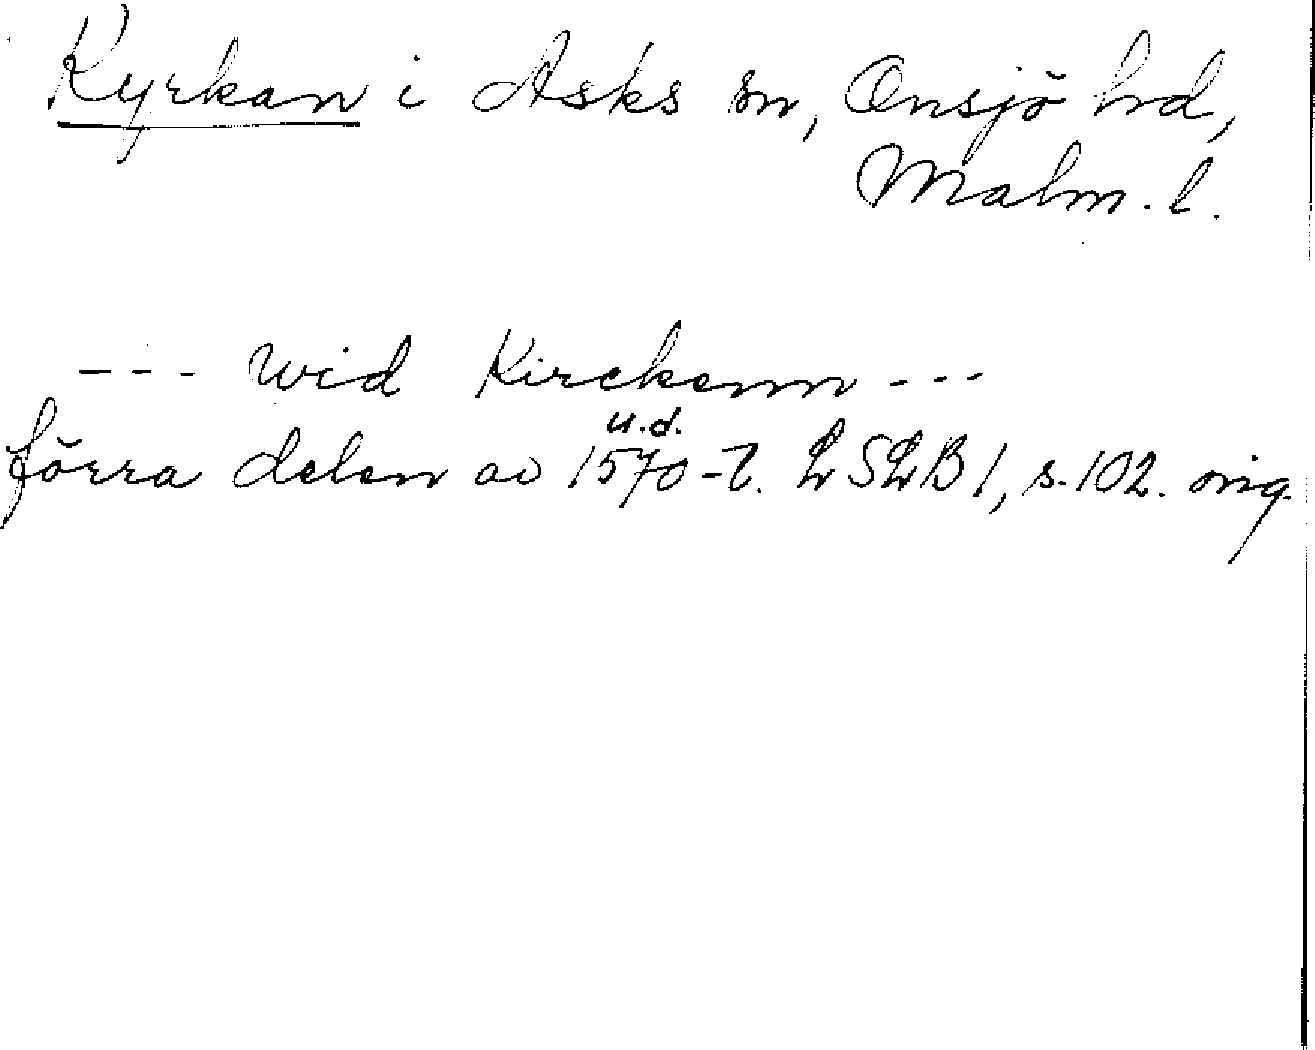 Kyrkan i Asks sn, Onsjö hd,
Malm. l.
--- wid Kirckenn ---
u.d.
förra delen av 1570-t. LSLB 1, s. 102. orig.